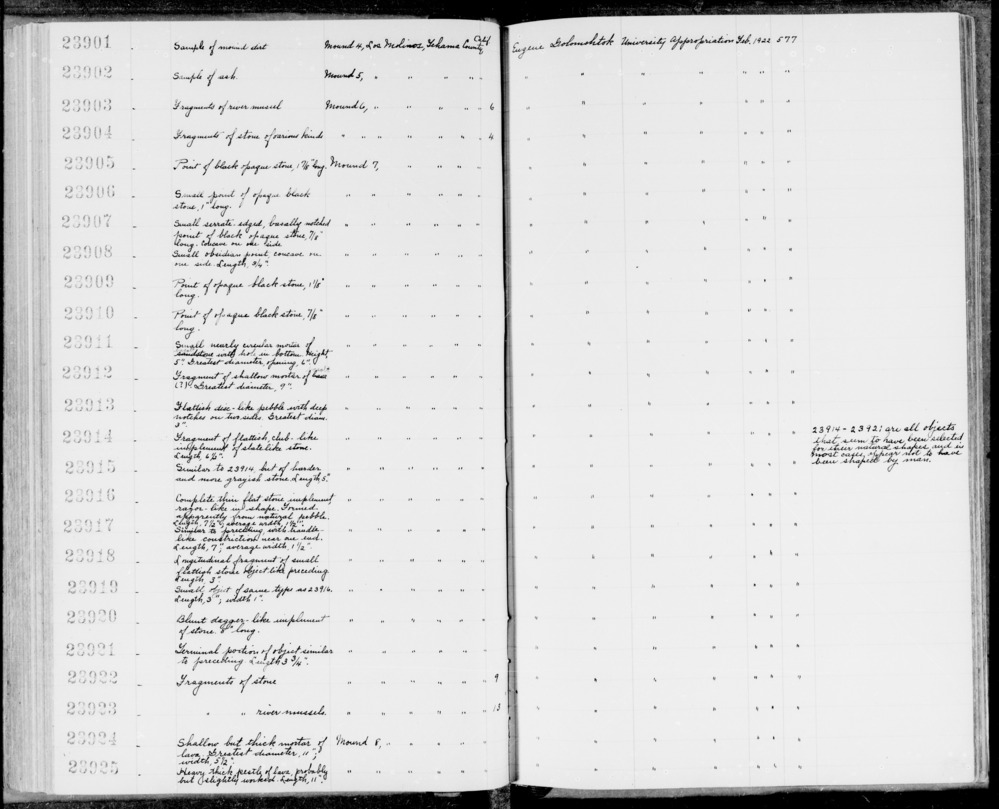 23901 - Sample of mound dirt Mound 4, Los Molinos, Tehama County Eugene Golomshtok University Appropriation Feb, 1922 577
23902 - Sample of ash. Mound 5, " " " " " " " " " " " "
23903 - Fragments of river mussel Mound 6, " " " " " 6 " " " " " " "
23904 - Fragments of stone of various kinds " " " " " " " 4 " " " " " " "
23905 - Point of black opaque stone, 1 7/8" long. Mound 7, " " " " " " " " " " " "
23906 - Small point of opaque black
stone, 1" long.
23907 - Small serrate-edged, basally notched
point of black opaque stone, 7/8"
long. concave on one side
23908 - Small obsidian point, concave on
one side. Length, 3/4".
23909 - Point of opaque black stone, 1 1/8"
long.
23910 - Point of opaque black stone, 7/8"
long.
23911 - Small nearly circular mortar of
sandstone with hole in bottom. Height,
5". Greatest diameter, opening, 6".
23912 - Fragment of shallow mortar of
(?) Greatest diameter, 9".
23913 - Flattish disc-like pebble with deep
notches on two sides. Greatest diam.
3".
23914 - Fragment of flattish, club-like
implement of slate like stone.
Length 6 1/2".
23914-23921 are all objects
that seem to have been selected
for their natural shapes and in
most cases, appear not to have
been shaped by man.
23915 - Similar to 23914, but of harder
and more grayish stone. Length, 5".
23916 - Complete thin flat stone implement
razor-like in shape. Formed
apparently from natural pebble.
Length, 7 1/2"; average width, 1 1/2".
23917 - Similar to preceding with handle-
like constriction near one end.
Length, 7"; average width, 1 1/2".
23918 - Longitudinal fragment of small
flattish stone object like preceding
Length, 3"
23919 - Small object of same type as 23916.
Length, 3"; width 1".
23920 - Blunt dagger-like implement
of stone. 8" long.
23921 - Terminal portion of object similar
to preceding. Length 3 3/4".
23922 - Fragments of stone " " " " " " 9
23923 - " " river mussels. " " " " " " 13
23924 - Shallow but thick mortar of Mound 8, " " " " "
lava. Greatest diameter, 11";
width, 5 1/2".
23925 - Heavy thick pestle of lava, probably
but slightly worked. Length, 11".